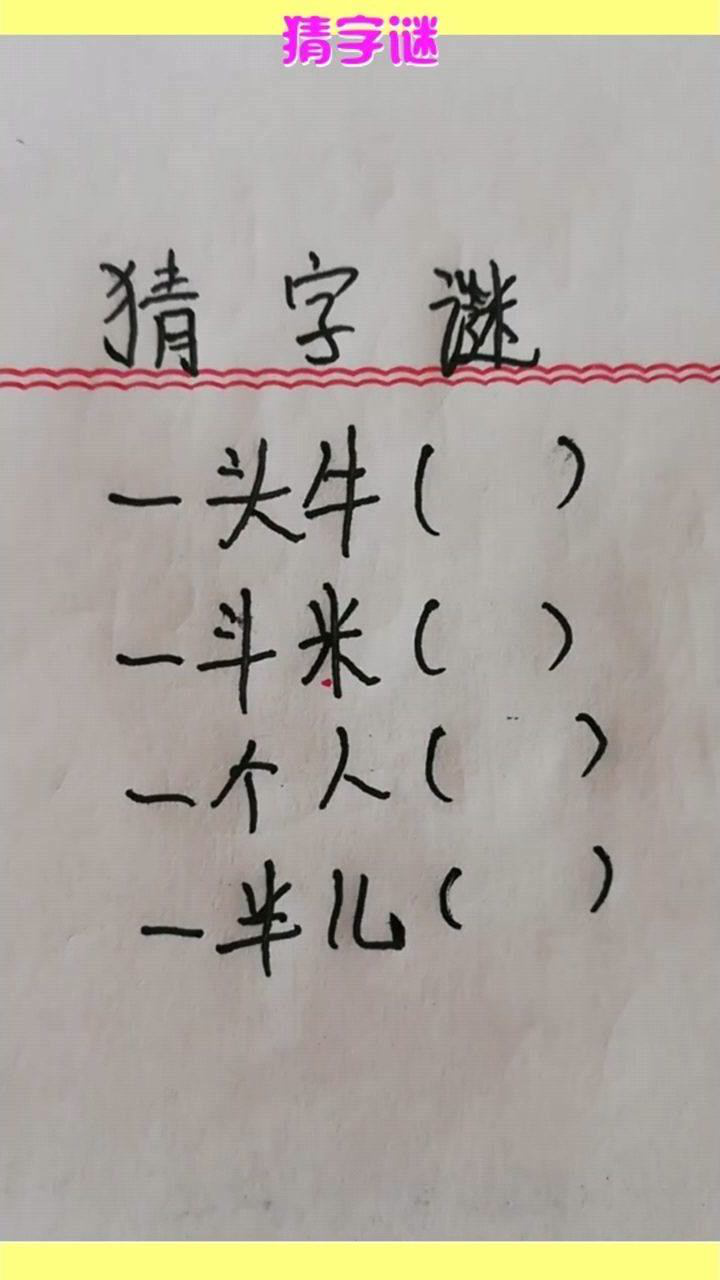 猜字谜
猜字谜
一头牛( )
一斗米( )
一个人( )
一半儿( )